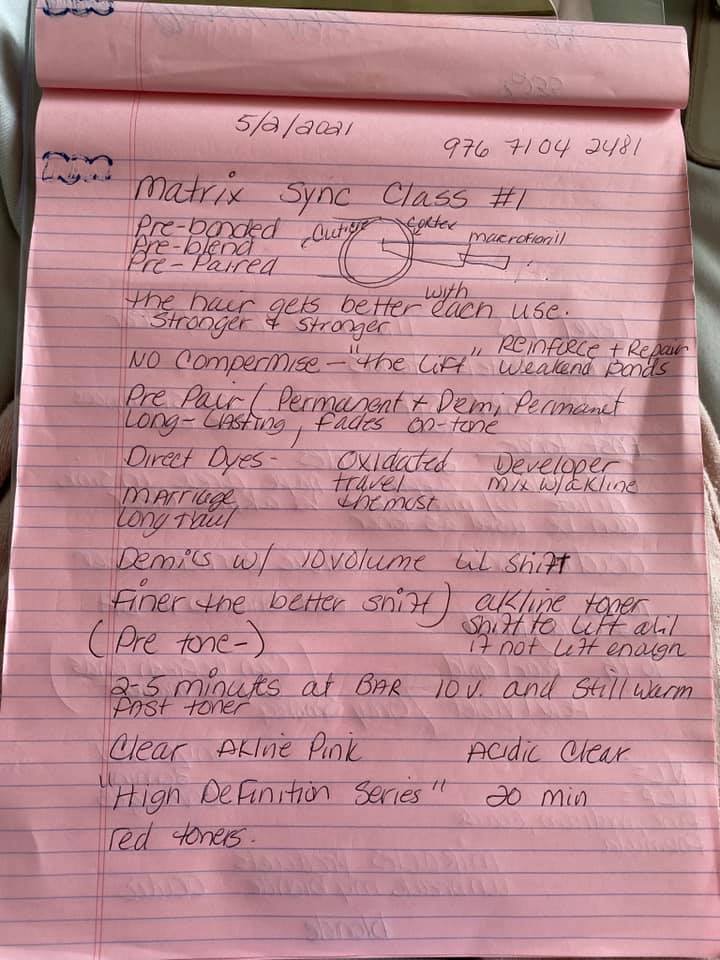 5/2/2021
976 7104 2481
Matrix Sync Class #1
Pre-bonded
Pre-blend
Pre-Paired
Cuticle
Cortex
macrofibril
the hair gets better with each use.
Stronger & stronger
NO Compermise - "the Lift" REINFORCE + Repair
Weakend Bonds
Pre Pair ( Permanent + Demi Permanet
Long-Lasting, fades on-tone
Direct Dyes - Oxidated Developer
travel mix w/akline
MArriage the most
Long Haul
Demi's w/ 10 volume Lil Shift
Finer the better shift) alkline toner
shift to Lift alil
(Pre tone-) if not Lift enough
2-5 minutes at BAR 10 v. and still warm
PAST toner
Clear Akline Pink Acidic Clear
"High Definition Series" 20 min
red toners.